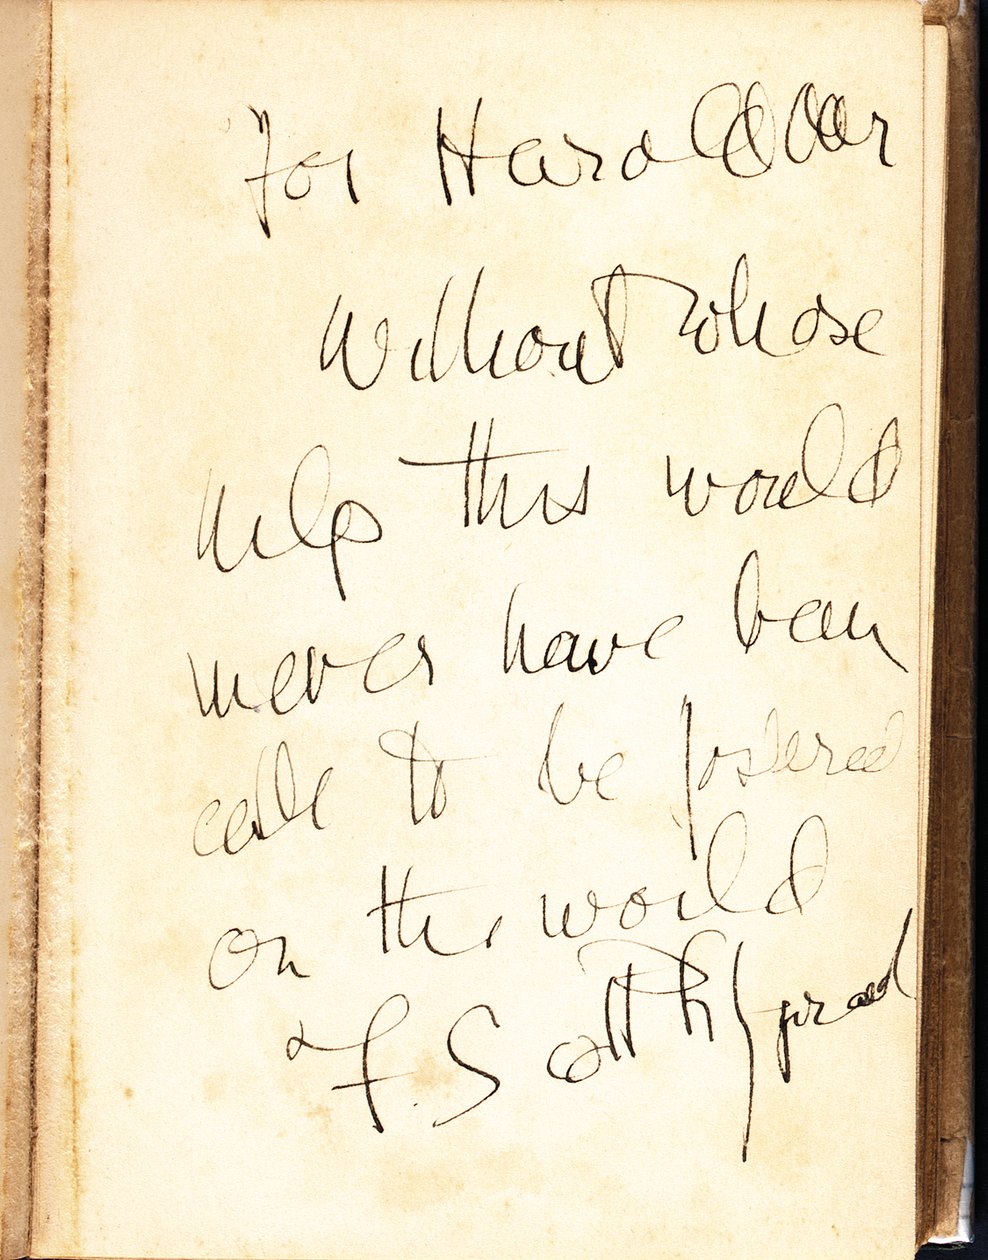 For Harold Ober
Without whose
help this would
never have been
able to be fostered
on the world
F Scott Fitzgerald